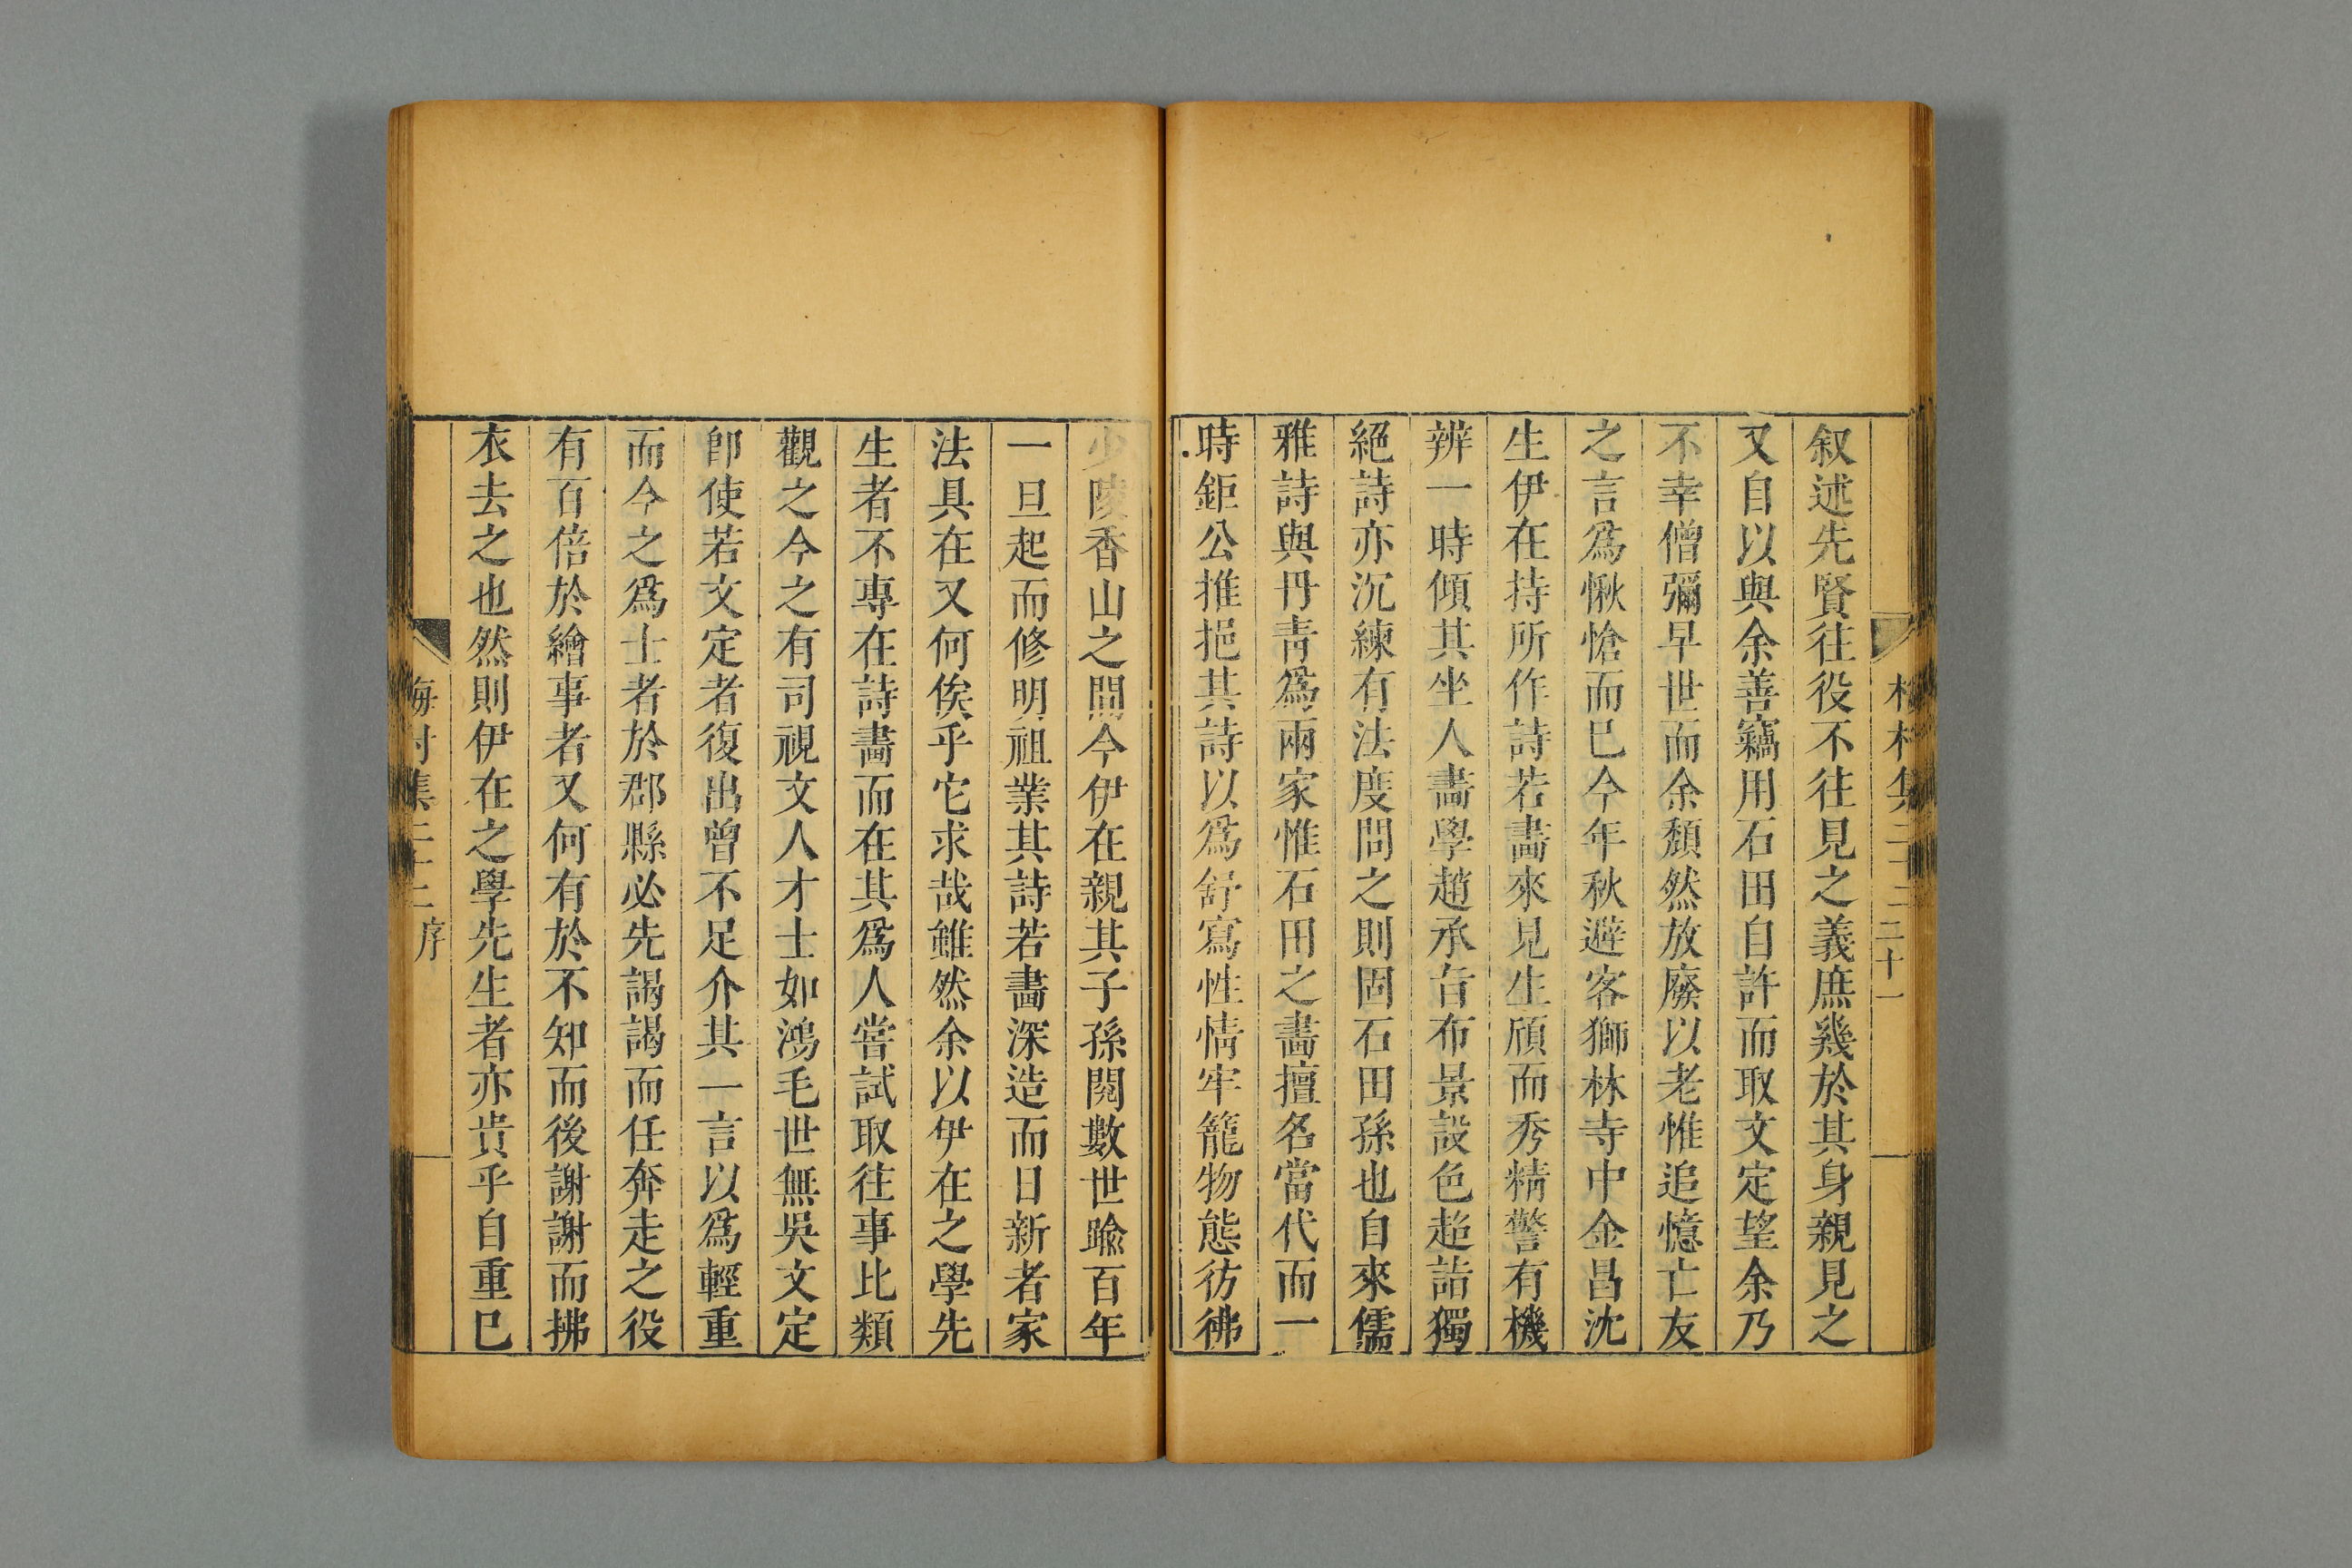 叙述先賢往役不往見之義庶幾於其身親見之
又自以與余善竊用石田自許而取文定望余乃
不幸僧彌早世而余頹然放廢以老惟追憶亡友
之言爲愀愴而已今年秋避客獅林寺中金昌沈
生伊在持所作詩若畵來見生頎而秀精警有機
辨一時傾其坐人畵學趙承旨布景設色超詣獨
絕詩亦沉練有法度問之則固石田孫也自來儒
雅詩與丹靑爲兩家惟石田之畵擅名當代而一
時鉅公推挹其詩以爲舒寫性情牢籠物態彷彿
少陵香山之間今伊在親其子孫閱數世踰百年
一旦起而修明祖業其詩若畵深造而日新者家
法具在又何俟乎它求哉雖然余以伊在之學先
生者不專在詩畵而在其爲人嘗試取往事比類
觀之今之有司視文人才士如鴻毛世無吳文定
卽使若文定者復出曾不足介其一言以爲輕重
而今之爲士者於郡縣必先謁謁而任奔走之役
有百倍於繪事者又何有於不知而後謝謝而拂
衣去之也然則伊在之學先生者亦貴乎自重已
村集
序
三十一